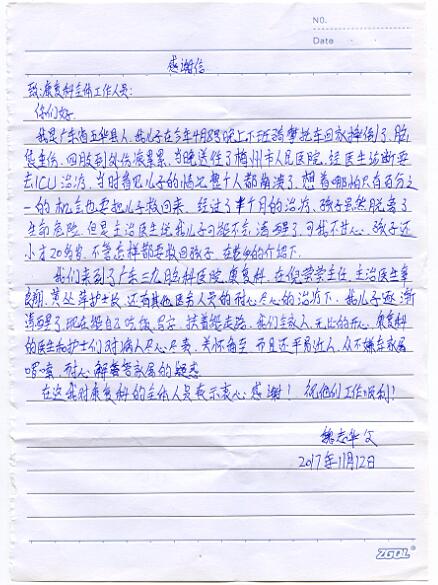 NO.
Date
感谢信
致:康复科主体工作人员:
你们好
我是广东省五华县人,我儿子在今年4月8号晚上下班骑摩托车回家摔倒了,脑
袋重伤,四肢到处伤痕累累,当晚送往了梅州市人民医院,经医生诊断要
去ICU治疗,当时看见儿子的情况整个人都崩溃了,想着哪怕只有百分之
一的机会也要把儿子救回来,经过了半个月的治疗,孩子虽然脱离了
生命危险,但是主治医生说儿子可能不会清醒了,可我不甘心,孩子还
小才20多岁,不管怎样都要救回孩子,在老乡的介绍下,
我们来到了广东三九脑科医院,康复科,在倪莹莹主任,主治医生
护士长,还有其他医务人员的耐心尽心的治疗下,我儿子逐渐
清醒了,现在能自己吃饭,写字,扶着能走路,我们全家人,无比的开心,康复科
的医生和护士们对病人尽心尽责,关怀备至,而且还平易近人,从不嫌弃家属
啰嗦,耐心解答家属的疑惑
在这我对康复科的全体人员表示衷心感谢!祝他们工作顺利!
魏志华父
2017年11月12日
ZGQL